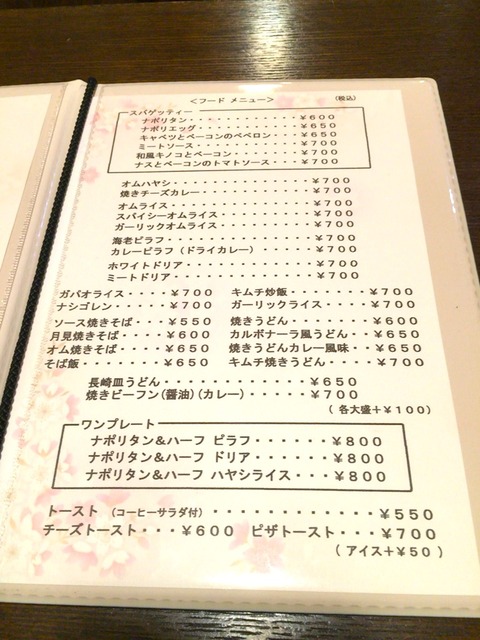 ＜フード メニュー＞ (税込)
スパゲッティー
ナポリタン・・・・・・・・・・・・￥６００
ナポリエッグ・・・・・・・・・・・￥６５０
キャベツとベーコンのペペロン・・・￥６５０
ミートソース・・・・・・・・・・・￥７００
和風キノコとベーコン・・・・・・・￥７００
ナスとベーコンのトマトソース・・・￥７００
オムハヤシ・・・・・・・・・・・・￥７００
焼きチーズカレー・・・・・・・・・￥７００
オムライス・・・・・・・・・・・・￥７００
スパイシーオムライス・・・・・・・￥７００
ガーリックオムライス・・・・・・・￥７００
海老ピラフ・・・・・・・・・・・・￥７００
カレーピラフ（ドライカレー）・・・￥７００
ホワイトドリア・・・・・・・・・・￥７００
ミートドリア・・・・・・・・・・・￥７００
ガパオライス・・・・￥７００ キムチ炒飯・・・・・・・￥７００
ナシゴレン・・・・・￥７００ ガーリックライス・・・・￥７００
ソース焼きそば・・・￥５５０ 焼きうどん・・・・・・・￥６００
月見焼きそば・・・・￥６００ カルボナーラ風うどん・・￥６５０
オム焼きそば・・・・￥６５０ 焼きうどんカレー風味・・￥６５０
そば飯・・・・・・・￥６５０ キムチ焼きうどん・・・・￥７００
長崎皿うどん・・・・・・・・・・・￥６５０
焼きビーフン(醤油)(カレー)・・・・￥７００
（各大盛＋￥１００）
ワンプレート
ナポリタン＆ハーフ ピラフ・・・・・・￥８００
ナポリタン＆ハーフ ドリア・・・・・・￥８００
ナポリタン＆ハーフ ハヤシライス・・・￥８００
トースト （コーヒーサラダ付）・・・・・・・・・・・・￥５５０
チーズトースト・・・￥６００ ピザトースト・・・￥７００
（アイス＋￥５０）